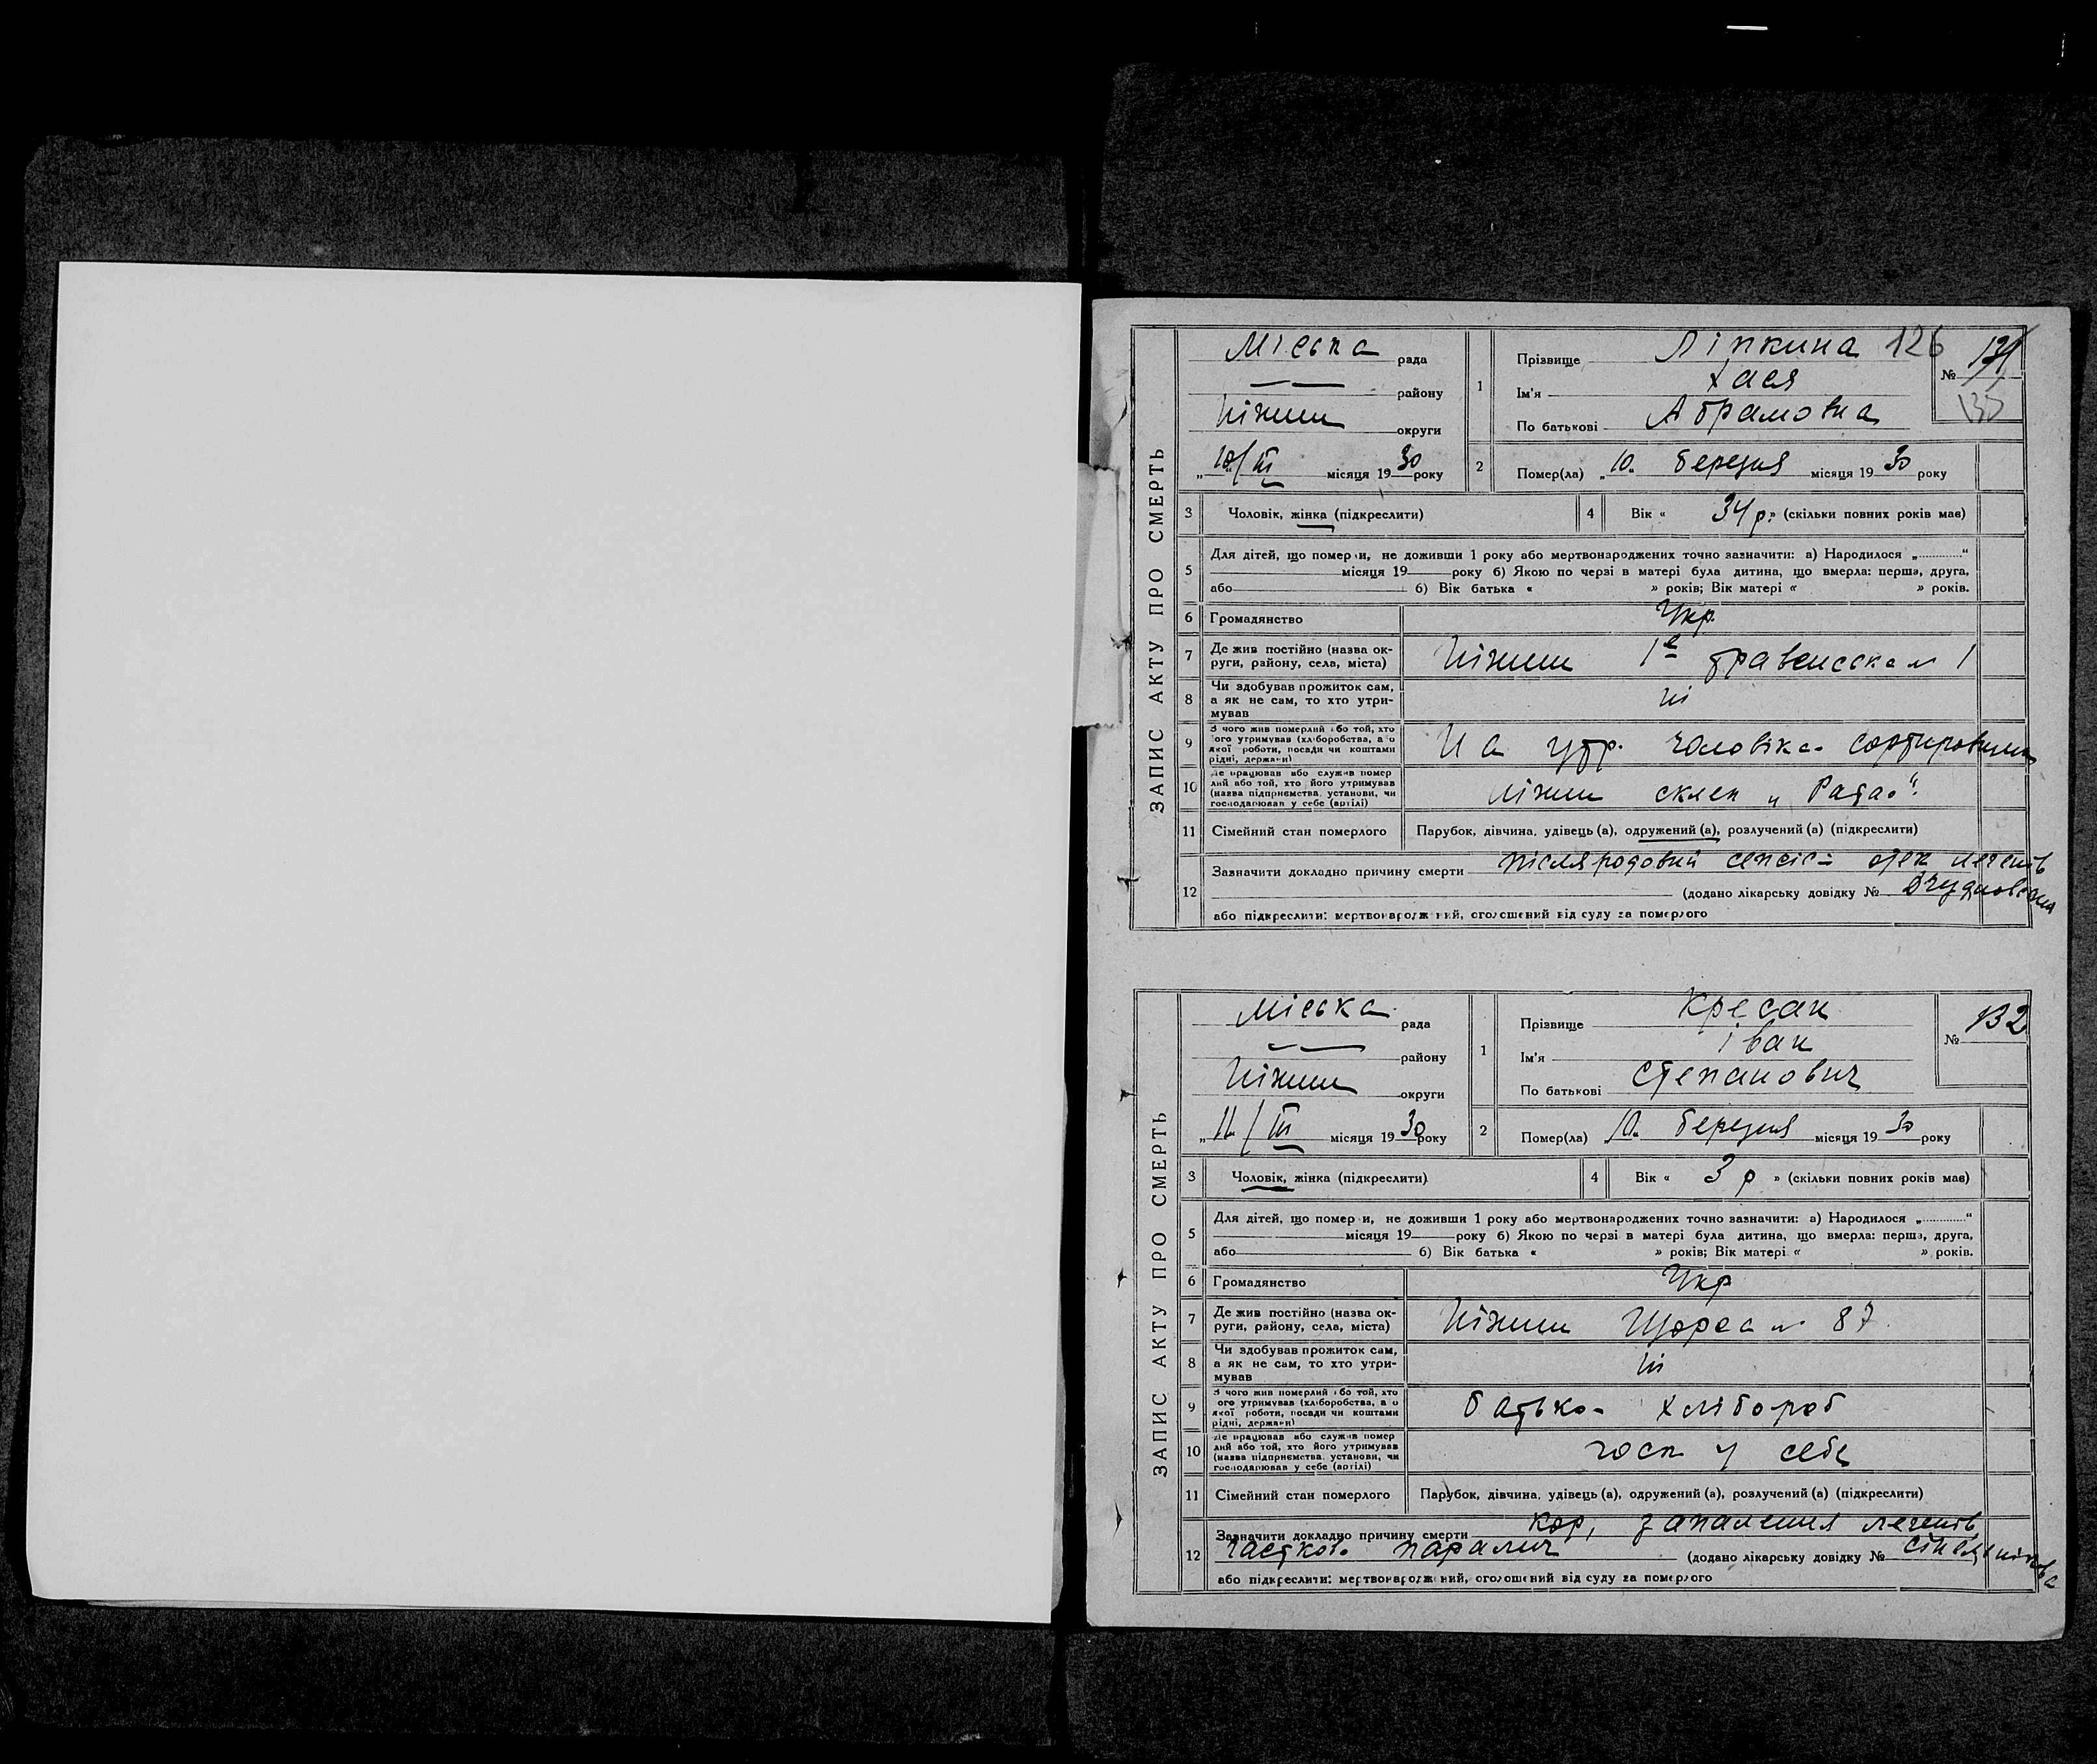 ЗАПИС АКТУ ПРО СМЕРТЬ
Міська рада
району
Ніжин округи
10/III місяця 1930 року
1 Прізвище Ліпкина 126
Ім'я Хася
По батькові Абрамовна
№ 131
2 Помер(ла) „10" березня місяця 1930 року
3 Чоловік, жінка (підкреслити)
4 Вік « 34 р.» (скільки повних років має)
5 Для дітей, що померли, не доживши 1 року або мертвонароджених точно зазначити: а) Народилося „............“
місяця 19 року б) Якою по черзі в матері була дитина, що вмерла: перша, друга,
або б) Вік батька « » років; Вік матері « » років.
6 Громадянство Укр.
7 Де жив постійно (назва ок-
руги, району, села, міста) Ніжин 1е 1
8 Чи здобував прожиток сам,
а як не сам, то хто утри-
мував ні
9 З чого жив померлий або той, хто
його утримував (хліборобства, або
якої роботи, посади чи коштами
рідні, держави) На утр. чоловіка-
10 Де працював або служив помер
лий або той, хто його утримував
(назва підприємства, установи, чи
господарював у себе (артілі) Ніжин склеп
11 Сімейний стан померлого Парубок, дівчина, удівець (а), одружений (а), розлучений (а) (підкреслити)
12 Зазначити докладно причину смерти післяродовий сепсіс - отек легенів
(додано лікарську довідку №
або підкреслити: мертвонароджений, оголошений від суду за померлого
ЗАПИС АКТУ ПРО СМЕРТЬ
Міська рада
району
Ніжин округи
„11/III місяця 1930 року
1 Прізвище Кресан
Ім'я Іван
По батькові Степанович
№ 132
2 Помер(ла) 10" березня місяця 1930 року
3 Чоловік, жінка (підкреслити)
4 Вік « 3 р » (скільки повних років має)
5 Для дітей, що померли, не доживши 1 року або мертвонароджених точно зазначити: а) Народилося „............“
місяця 19 року б) Якою по черзі в матері була дитина, що вмерла: перша, друга,
або б) Вік батька « » років; Вік матері « » років.
6 Громадянство Укр
7 Де жив постійно (назва ок-
руги, району, села, міста) Ніжин Щорса № 87
8 Чи здобував прожиток сам,
а як не сам, то хто утри-
мував ні
9 З чого жив померлий або той, хто
його утримував (хліборобства, або
якої роботи, посади чи коштами
рідні, держави) батько- хлібороб
10 Де працював або служив помер
лий або той, хто його утримував
(назва підприємства, установи, чи
господарював у себе (артілі) госп у себе
11 Сімейний стан померлого Парубок, дівчина, удівець (а), одружений (а), розлучений (а) (підкреслити)
12 Зазначити докладно причину смерти кор, запалення легенів
паралич (додано лікарську довідку №
або підкреслити: мертвонароджений, оголошений від суду за померлого